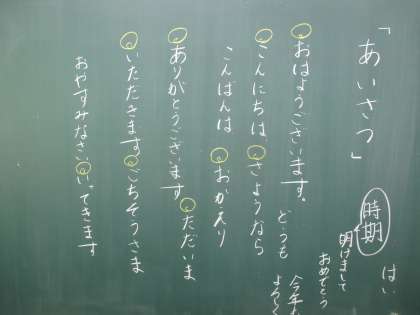 「あいさつ」
はい
時期
明けまして
おめでとう
今年も
どうも
おはようございます。
こんにちは さようなら
こんばんは おかえり
ありがとうございます ただいま
いただきます ごちそうさま
おやすみなさい いってきます